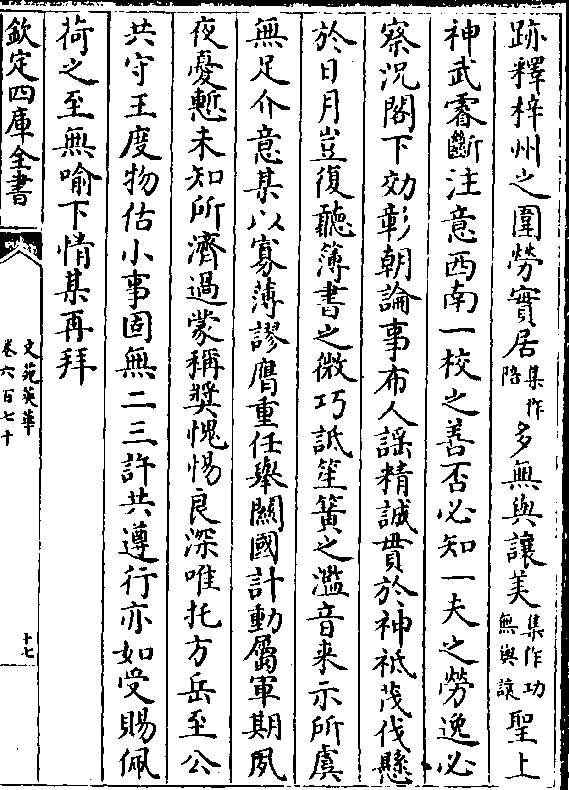 跡釋梓州之圍勞實居集作陪多無與讓美集作功無與讓聖上
神武睿斷注意西南一校之善否必知一夫之勞逸必
察況閤下効彰朝論事布人謡精誠貫於神祗茂伐懸
於日月豈復聽簿書之微巧詆笙簧之濫音来示所虞
無足介意某以寡薄謬膺重任舉關國計動屬軍期夙
夜憂慙未知所濟過蒙稱奬愧惕良深唯托方岳至公
共守王度物估小事固無二三許共遵行亦如受賜佩
荷之至無喻下情某再拜
欽定四庫全書
文苑英華
卷六百七十
十七